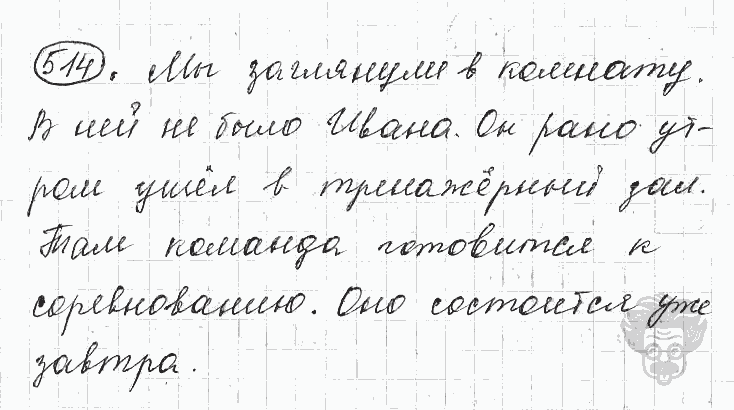 514. Мы заглянули в комнату.
В ней не было Ивана. Он рано ут-
ром ушёл в тренажёрный зал.
Там команда готовится к
соревнованию. Оно состоится уже
завтра.